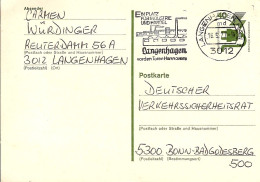 Absender:
CARMEN
WURDINGER
REUTERDAMM 56A
(Postfach oder Straße und Hausnummer)
3012 LANGENHAGEN
(Postleitzahl) (Ort)
EIN PLATZ
FÜR INDUSTRIE
UND HANDEL
Langenhagen
vor den Toren Hannovers
LANGENHAGEN
3012
Postkarte
DEUTSCHER
VERKEHRSSICHERHEITSRAT
(Postfach oder Straße und Hausnummer)
5300 BONN-BADGODESBERG
500
(Postleitzahl) (Bestimmungsort)